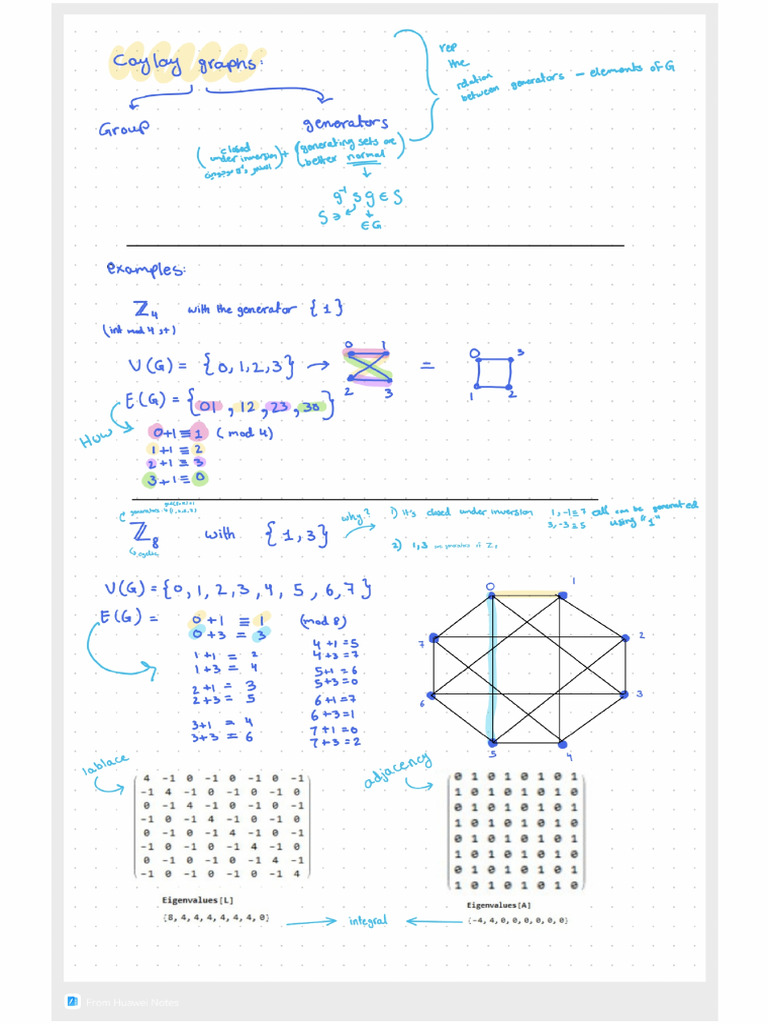 Caylay graphs:
Group
generators
rep
the
relation
between generators – elements of G
(closed under inversion
+ (generating sets are
better normal)
g⁻¹ s g ∈ S
S ∋
∈ G
examples:
ℤ₄ with the generator {1}
(int mod 4, +)
V(G) = {0,1,2,3} →
0 1
2 3
=
0 3
1 2
E(G) = {01, 12, 23, 30}
How
0+1 ≡ 1 (mod 4)
1+1 = 2
2+1 ≡ 3
3+1 ≡ 0
generators
ℤ₈ with {1,3}
why?
1) it's closed under inversion 1, -1≡7
3, -3≡5
all can be generated
using "1"
2) 1,3 are generators of ℤ₈
V(G) = {0, 1, 2, 3, 4, 5, 6, 7}
E(G) =
0+1 ≡ 1 (mod 8)
0+3 = 3
1+1 = 2
1+3 = 4
2+1 = 3
2+3 = 5
3+1 = 4
3+3 = 6
4+1 = 5
4+3 = 7
5+1 = 6
5+3 = 0
6+1 = 7
6+3 = 1
7+1 = 0
7+3 = 2
0 1
7 2
6 3
5 4
lablace
4 -1 0 -1 0 -1 0 -1
-1 4 -1 0 -1 0 -1 0
0 -1 4 -1 0 -1 0 -1
-1 0 -1 4 -1 0 -1 0
0 -1 0 -1 4 -1 0 -1
-1 0 -1 0 -1 4 -1 0
0 -1 0 -1 0 -1 4 -1
-1 0 -1 0 -1 0 -1 4
Eigenvalues[L]
{8, 4, 4, 4, 4, 4, 4, 0}
integral
adjacency
0 1 0 1 0 1 0 1
1 0 1 0 1 0 1 0
0 1 0 1 0 1 0 1
1 0 1 0 1 0 1 0
0 1 0 1 0 1 0 1
1 0 1 0 1 0 1 0
0 1 0 1 0 1 0 1
1 0 1 0 1 0 1 0
Eigenvalues[A]
{-4, 4, 0, 0, 0, 0, 0, 0}
From Huawei Notes